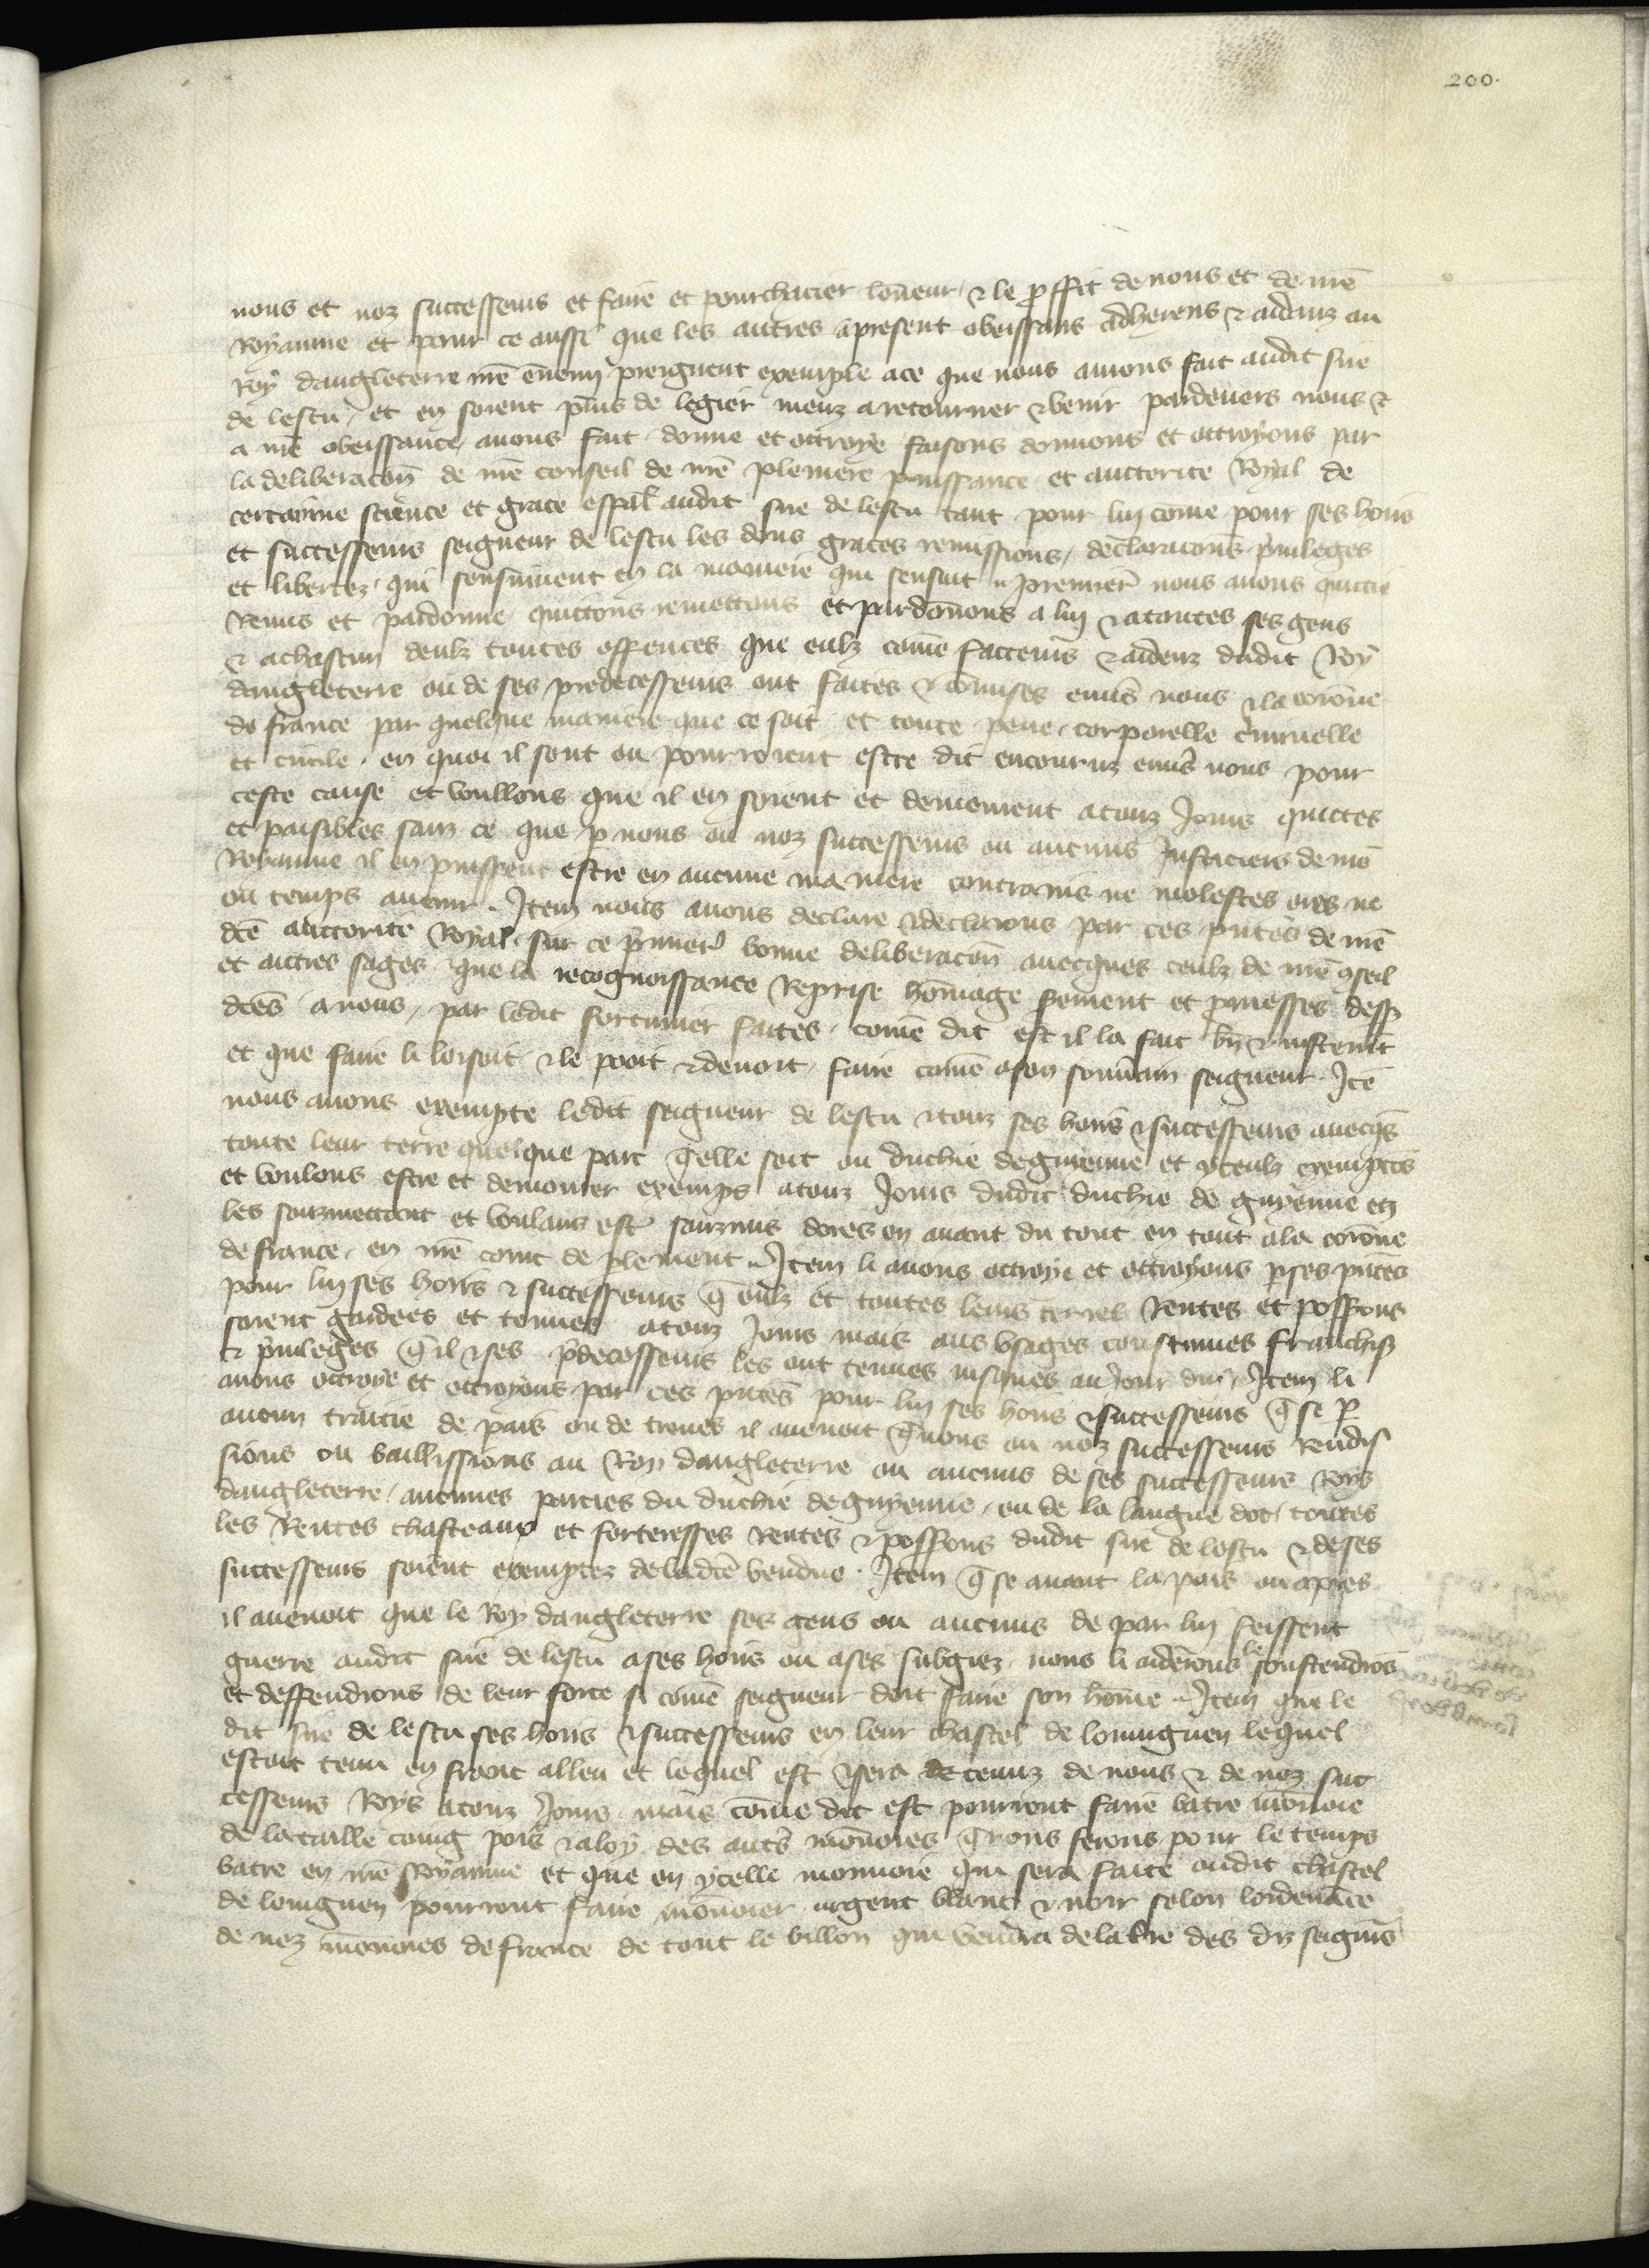 200.
nous et noz successeurs et faire et pourchacier lon̄eur ⁊ le ꝓffit de nous et de nr̄e
Royaume et pour ce aussi que les autres apresent obeissans adherens ⁊ aidanz au
Roy dangleterre nr̄e en̄emi preignent exemple ace que nous auions fait audit sire
de lescu, et en soient plus de legier meuz a retourner ⁊ venir pardeuers nous ⁊
a nr̄e obeissance, auons fait donne et ottroye faisons donnons et ottroyons par
la deliberacōn de nr̄e conseil de nr̄e pleniere puissance et auctorite Royal de
certainne science et grace esp̄al audit sire de lescu tant pour lui cōme pour ses hoirs
et successeurs seigneur de lescu les dons graces remissions, declaracions p̄uileges
et libertez qui sensuiuent en la maniere qui sensuit. premier̄ nous auons quittie
Remis et pardonne quittons remettons et pardon̄ons a lui ⁊ atoutes ses gens
⁊ achascun deulz toutes offences que eulz cōme facteurs ⁊ aideurs dudit Roy
dangleterre ou de ses predecesseurs ont faites ⁊ cōmises enuers nous ⁊ la coron̄e
de france par quelque maniere que ce soit et toute peine, corporelle c̄minelle
et ciuile, en quoi il sont ou pourroient estre dit encouruz enuers nous pour
ceste cause et voullons que il en soient et demeurent atouz Jours quictes
et paisibles sanz ce que ꝑ nous ou noz successeurs ou aucuns Justiciers de nr̄e
Royaume il en puissent estre en aucune maniere contrains ne molestes ores ne
ou temps auenir. Item nous auons declare ⁊ declarons par ces p̄ntes de nr̄e
dc̄e auctorite Royal sur ce p̄mier̄ bonne deliberacōn auecques ceulz de nr̄e ꝯseil
et autres sages, que la recognoissance Reprise hōmage s̄ement et ꝓmesses dess
dc̄es a nous, par ledit fortunier faites, cōme dit est il la fait bn̄ ⁊ iustem̄t
et que faire li loisoit ⁊ le pooit ⁊ deuoit faire cōme ason souūain seigneur. Itē
nous auons exempte ledit seigneur de lescu ⁊ touz ses hoirs ⁊ successeurs auecq̄s
toute leur terre quelque part q̄elle soit ou duchie deguienne et yceulz exemptōs
et voulons estre et demourer exemps atouz Jours dudit duchie de guyenne en
les sourmettant et voulans est̄ sourmis dores en auant du tout en tout ala coron̄e
de france, en nr̄e court de plement. Item li auons ottroye et ottroyons ꝑ ses p̄ntes
pour lui ses hoirs ⁊ successeurs q̄ eulz et toutes leurs terres Rentes et possions
soient gardees et tenues atouz Jours mais aus vsages coustumes franchis
⁊ p̄uileges q̄il ⁊ ses p̄decesseurs les ont tenues iusques au Jour dui. Item li
auons ottroye et ottroyons par ces p̄ntes pour lui ses hoirs ⁊ successeurs q̄ se ꝑ
aucun traictie de pais ou de treues il auenoit q̄nous ou noz successeurs Rendis
sions ou baillissions au Roy dangleterre ou aucuns de ses successeurs Roys
dangleterre, aucunes parties du duchie deguyenne, ou de la langue doc, toutes
les Rentes chasteaux et forteresses Rentes ⁊ possions dudit sire de lescu ⁊ deses
successeurs soient exemptez deladc̄e vendue. Item q̄ se auant la pais ou apres
il auenoit que le Roy dangleterre ses gens ou aucuns de par lui feissent
guerre audit sire de lescu ases hoirs ou ases subgiez, nous li aiderions le soustendriōs
et deffendrions de leur force si cōme seigneur doit faire son hōme. Item que le
dit sire de lescu ses hoirs ⁊ successeurs en leur chastel de louuignen lequel
estoit tenu en franc alleu et lequel est ⁊ sera de tenuz de nous ⁊ de noz suc
cesseurs Roys atouz Jours mais cōme dit est pourront faire batre mōnoie
de la taille coing pois ⁊ aloy des aut̄s mōnoies q̄nous ferons pour le temps
batre en nr̄e Royaume et que en ycelle monnoie qui sera faite oudit chastel
de louuignen pourront faire mōnoier argent blanc ⁊ noir selon lordenāce
de noz mōnoies de france de tout le billon qui vendra de la tr̄re des diz seign̄rs